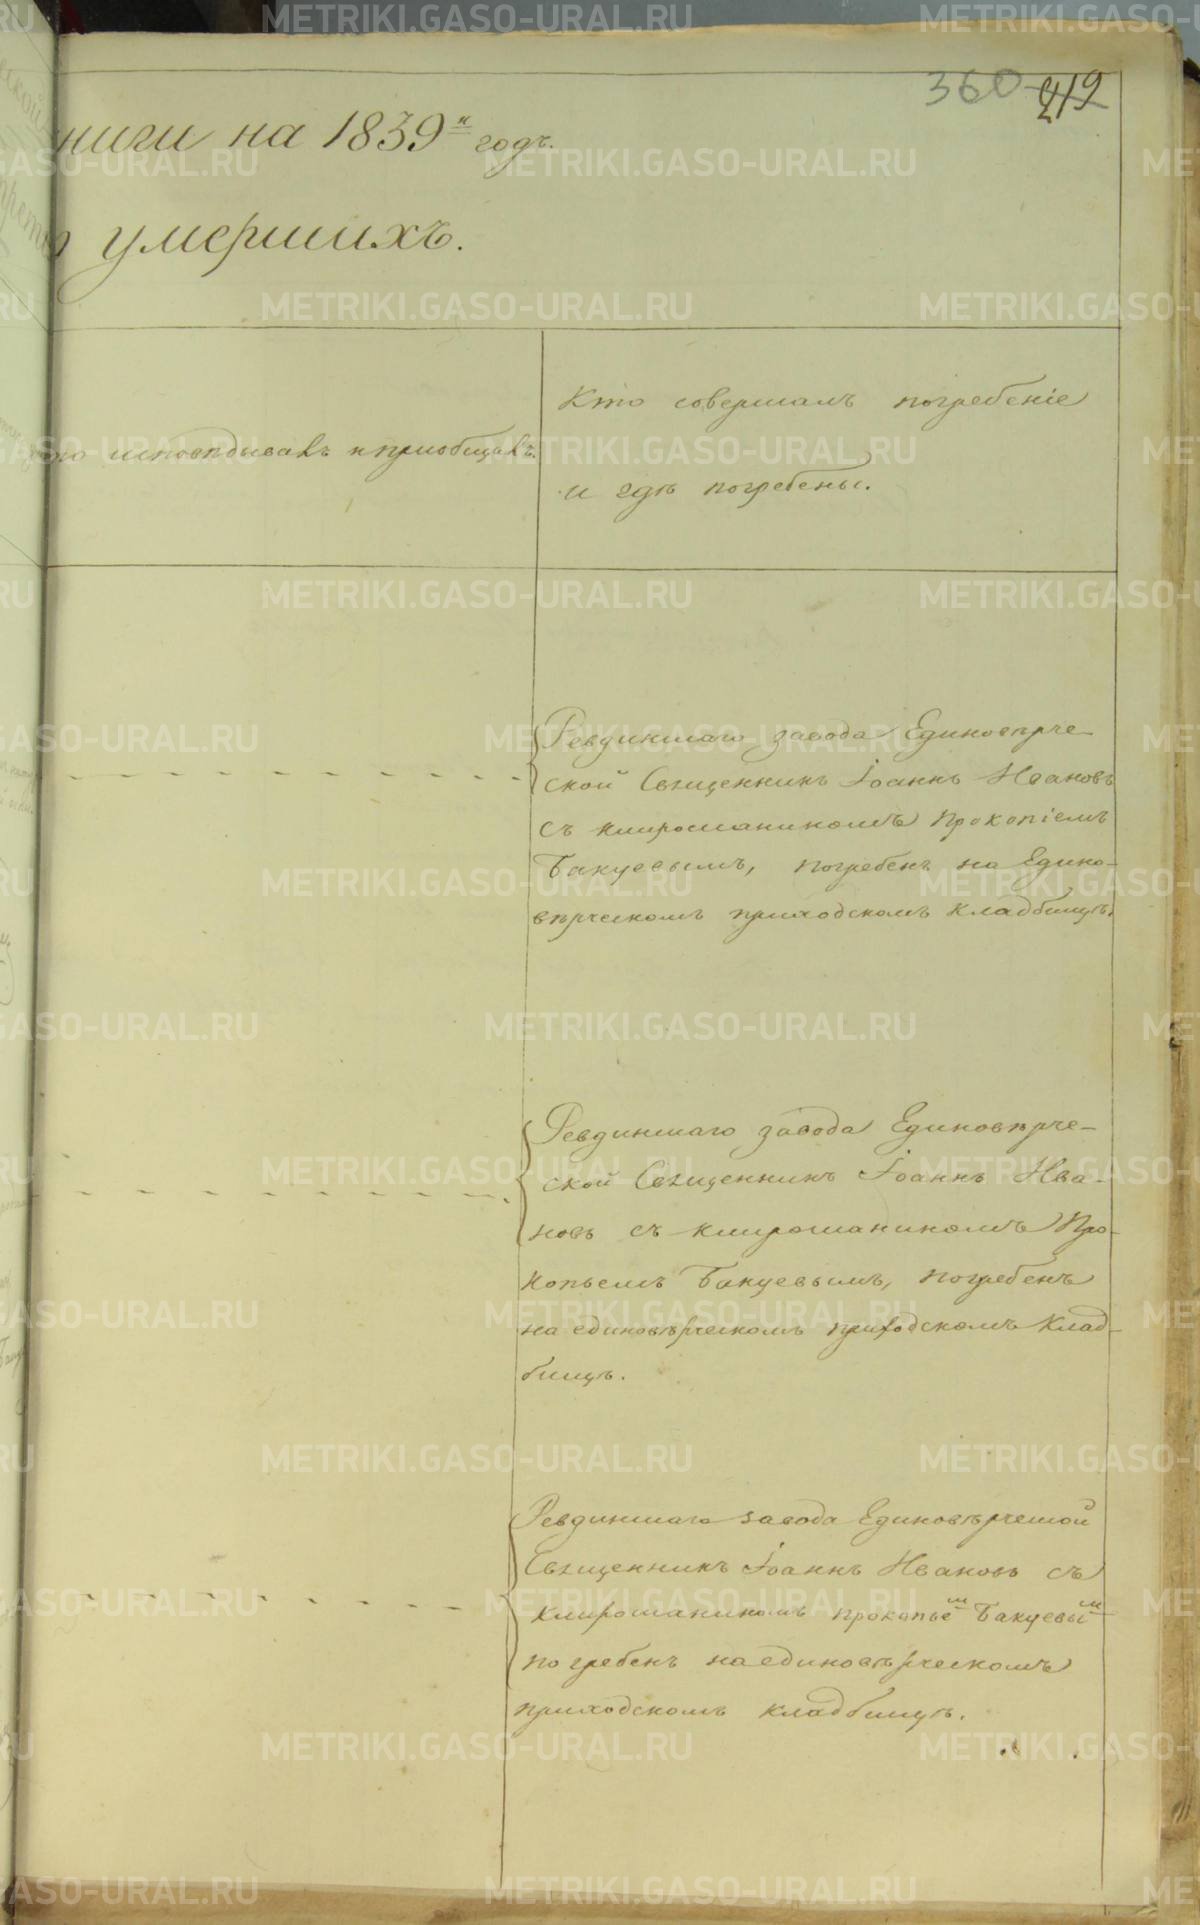 360 219
ниги на 1839й годъ.
умершихъ.
исповѣдывалъ и приобщалъ.
Кто совершалъ погребеніе
и гдѣ погребены.
Ревдинскаго завода Единовѣрче-
ской Священникъ Іоаннъ Ивановъ
съ клирошаникомъ Прокопіемъ
Бакуевымъ, погребенъ на Едино-
вѣрческомъ приходскомъ кладбищѣ.
Ревдинскаго завода Единовѣрче-
ской Священникъ Іоаннъ Ива-
новъ съ клирошаникомъ Про-
копьемъ Бакуевымъ, погребенъ
на единовѣрческомъ приходскомъ клад-
бищѣ.
Ревдинскаго завода Единовѣрческой
Священникъ Іоаннъ Ивановъ съ
клирошаникомъ прокопьем Бакуевым
погребенъ на единовѣрческомъ
приходскомъ кладбищѣ.
METRIKI.GASO-URAL.RU